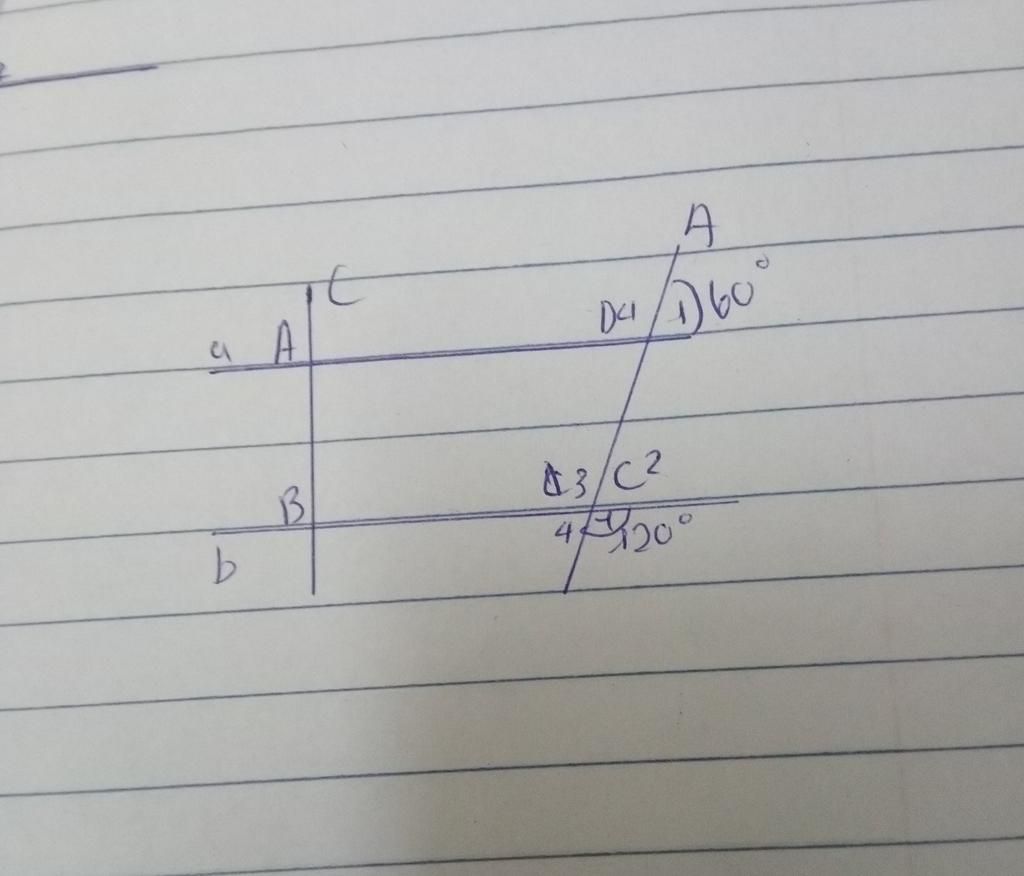 A
C
D4 1) 60°
a A
3 C 2
B
4 1 120°
b